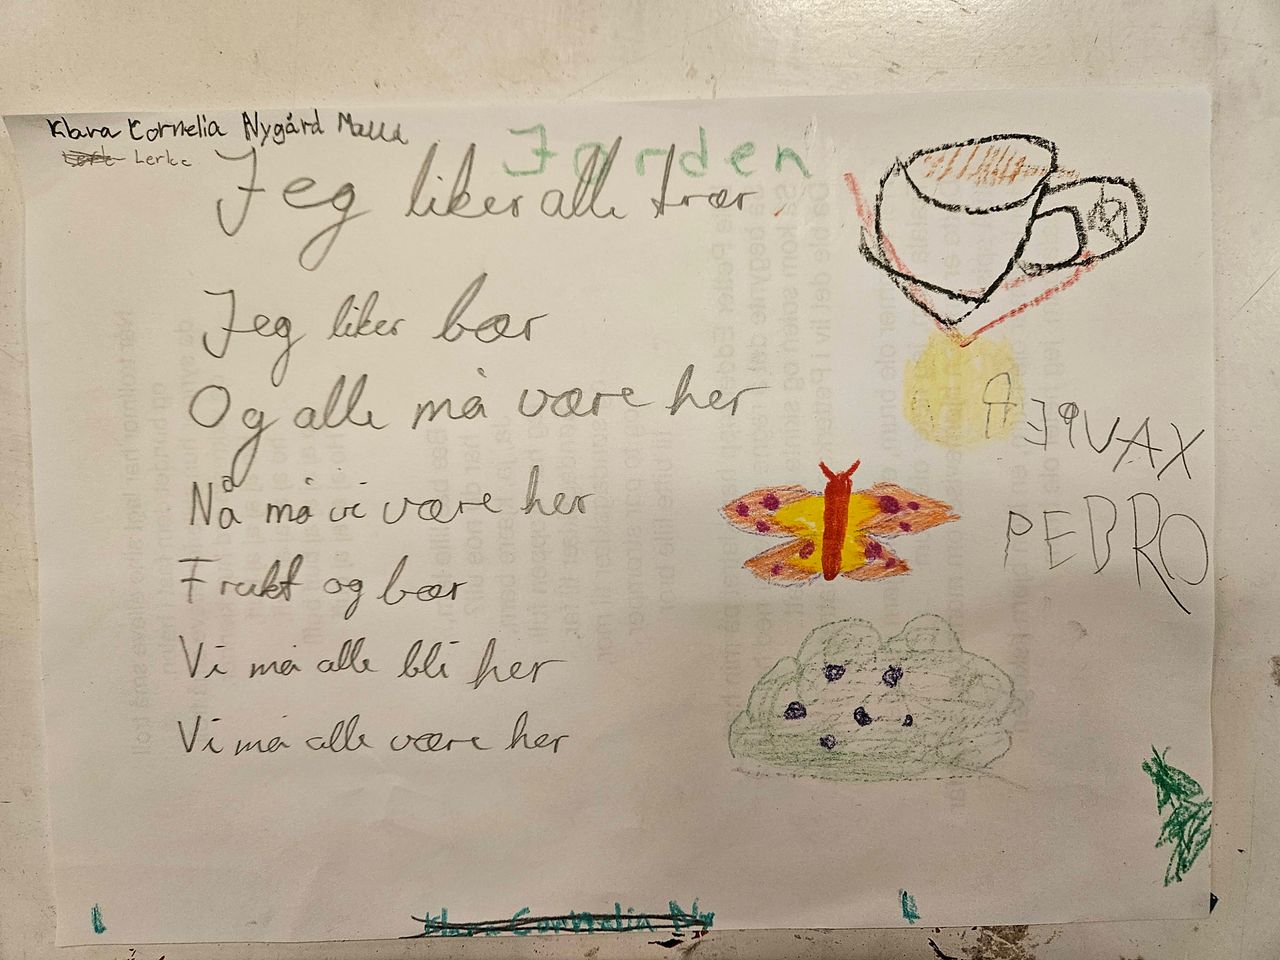 Klara Cornelia Nygård
Lerke
Jorden
Jeg liker alle trær
Jeg liker bær
Og alle må være her
Nå må vi være her
Frukt og bær
Vi må alle bli her
Vi må alle være her
PEDRO
Klara Cornelia Ny